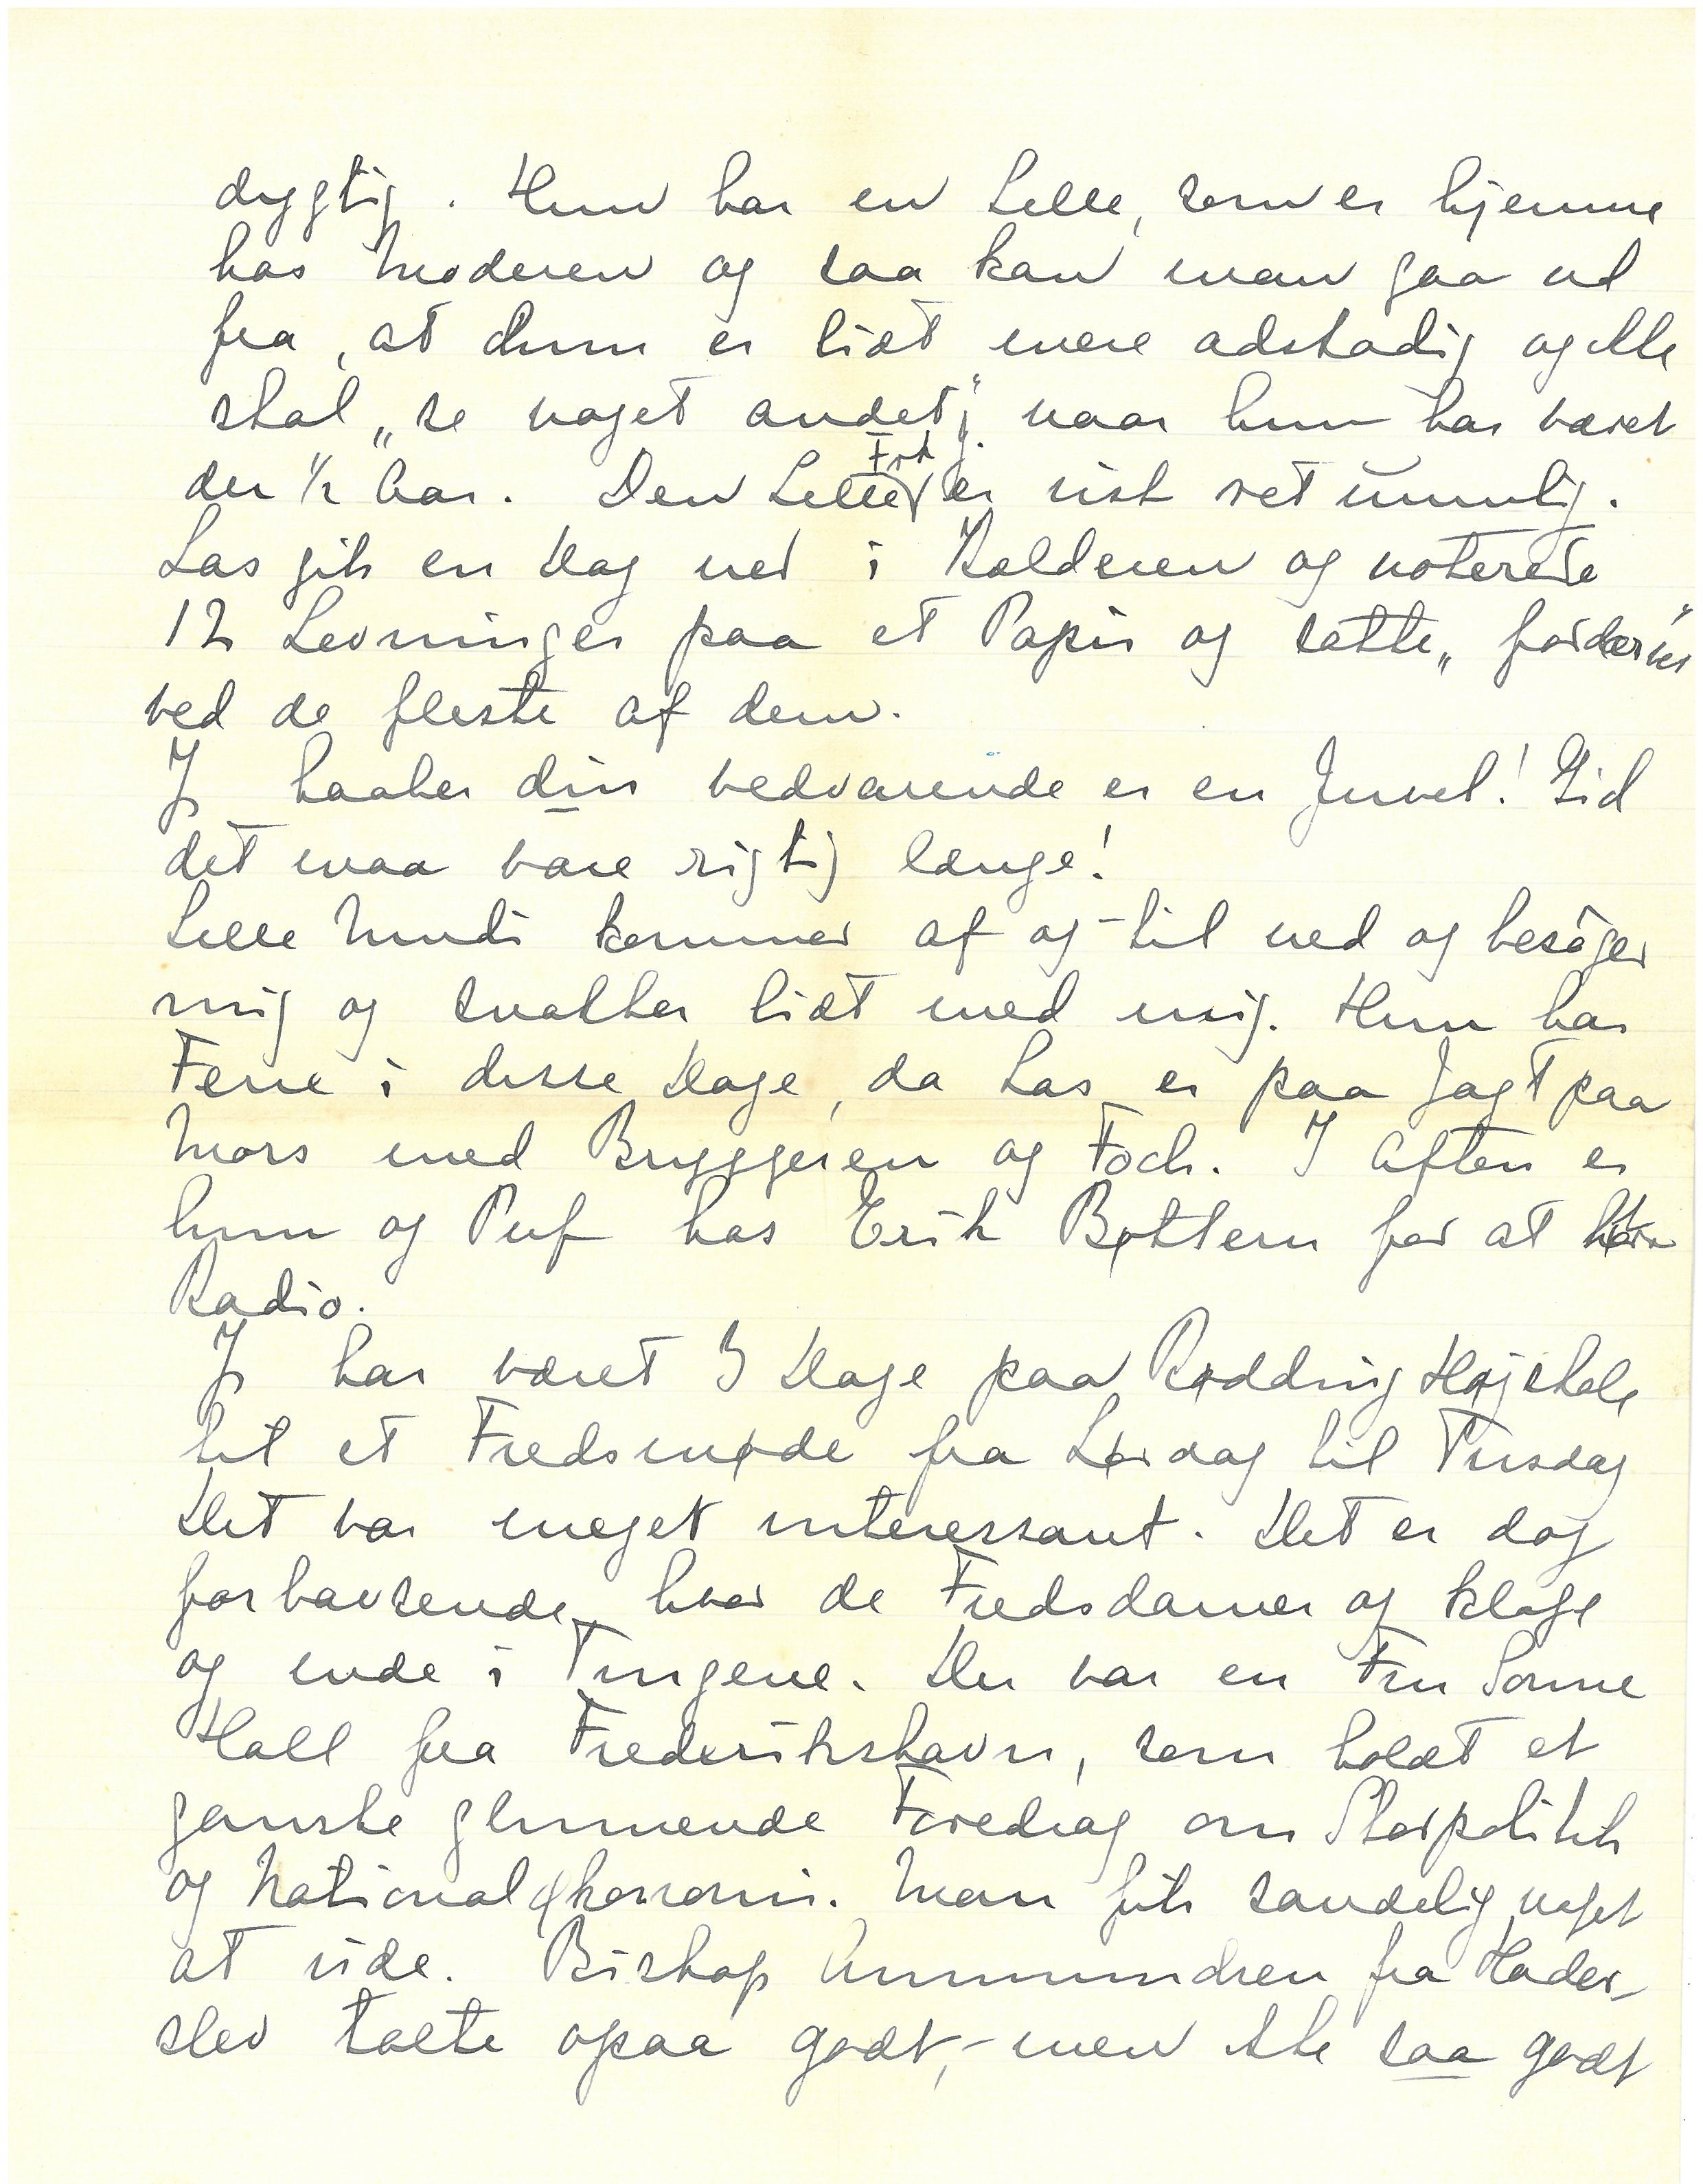 dygtig. Hun har en Lille, som er hjemme
hos Moderen og saa kan man gaa ud
fra, at hun er lidt mere adstadig og ikke
skal „se noget andet", naar hun har været
der 1/2 Aar. Den Lille Frk J. er vist ret umulig.
Las gik en Dag ned i Kælderen og noterede
12 Levninger paa et Papir og satte „fordærvet"
ved de fleste af dem.
Jeg haaber din vedvarende er en Juvel! Gid
det maa vare rigtig længe!
Lille Mudi kommer af og til ned og besøger
mig og snakker lidt med mig. Hun har
Ferie i disse Dage, da Las er paa Jagt paa
Mors med Bryggeren og Foch. I Aften er
hun og Puf hos Erik Bøttern for at høre
Radio.
Jeg har været 3 Dage paa Rødding Højskole
til et Fredsmøde fra Lørdag til Tirsdag
Det var meget interessant. Det er dog
forbavsende, hvor de Fredsdamer og kloge
og inde i Tingene. Der var en Fru Sonne
Hall fra Frederikshavn, som holdt et
ganske glimrende Foredrag om Storpolitik
og Nationaløkonomi. Man fik sandelig noget
at vide. Biskop Ammundsen fra Hader-
slev talte ogsaa godt, - men ikke saa godt